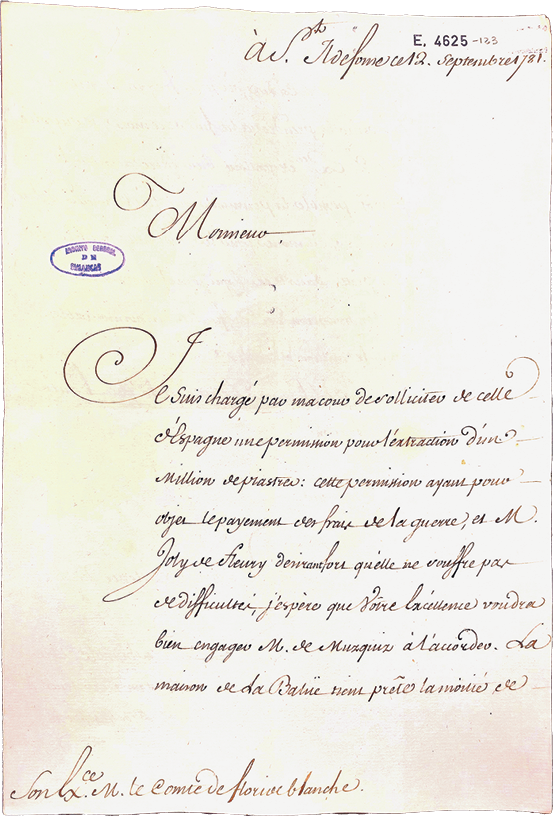 E. 4625 -123
à S.t Ildefonse ce 12. Septembre 1781.
Monsieur
ARCHIVO GENERAL
DE
SIMANCAS
Je suis chargé par ma cour de solliciter de celle
d'Espagne une permission pour l'extraction d'un
Million de piastres: cette permission ayant pour
objet le payement des frais de la guerre, et M.
Joly de fleury desirant fort qu'elle ne souffre pas
de difficultés, j'espère que Votre Excellence voudra
bien engager M. de Muzquiz à l'accorder. La
maison de La Balüe tient prête la moitié de
Son Ex.ce M. le Comte de floride blanche.